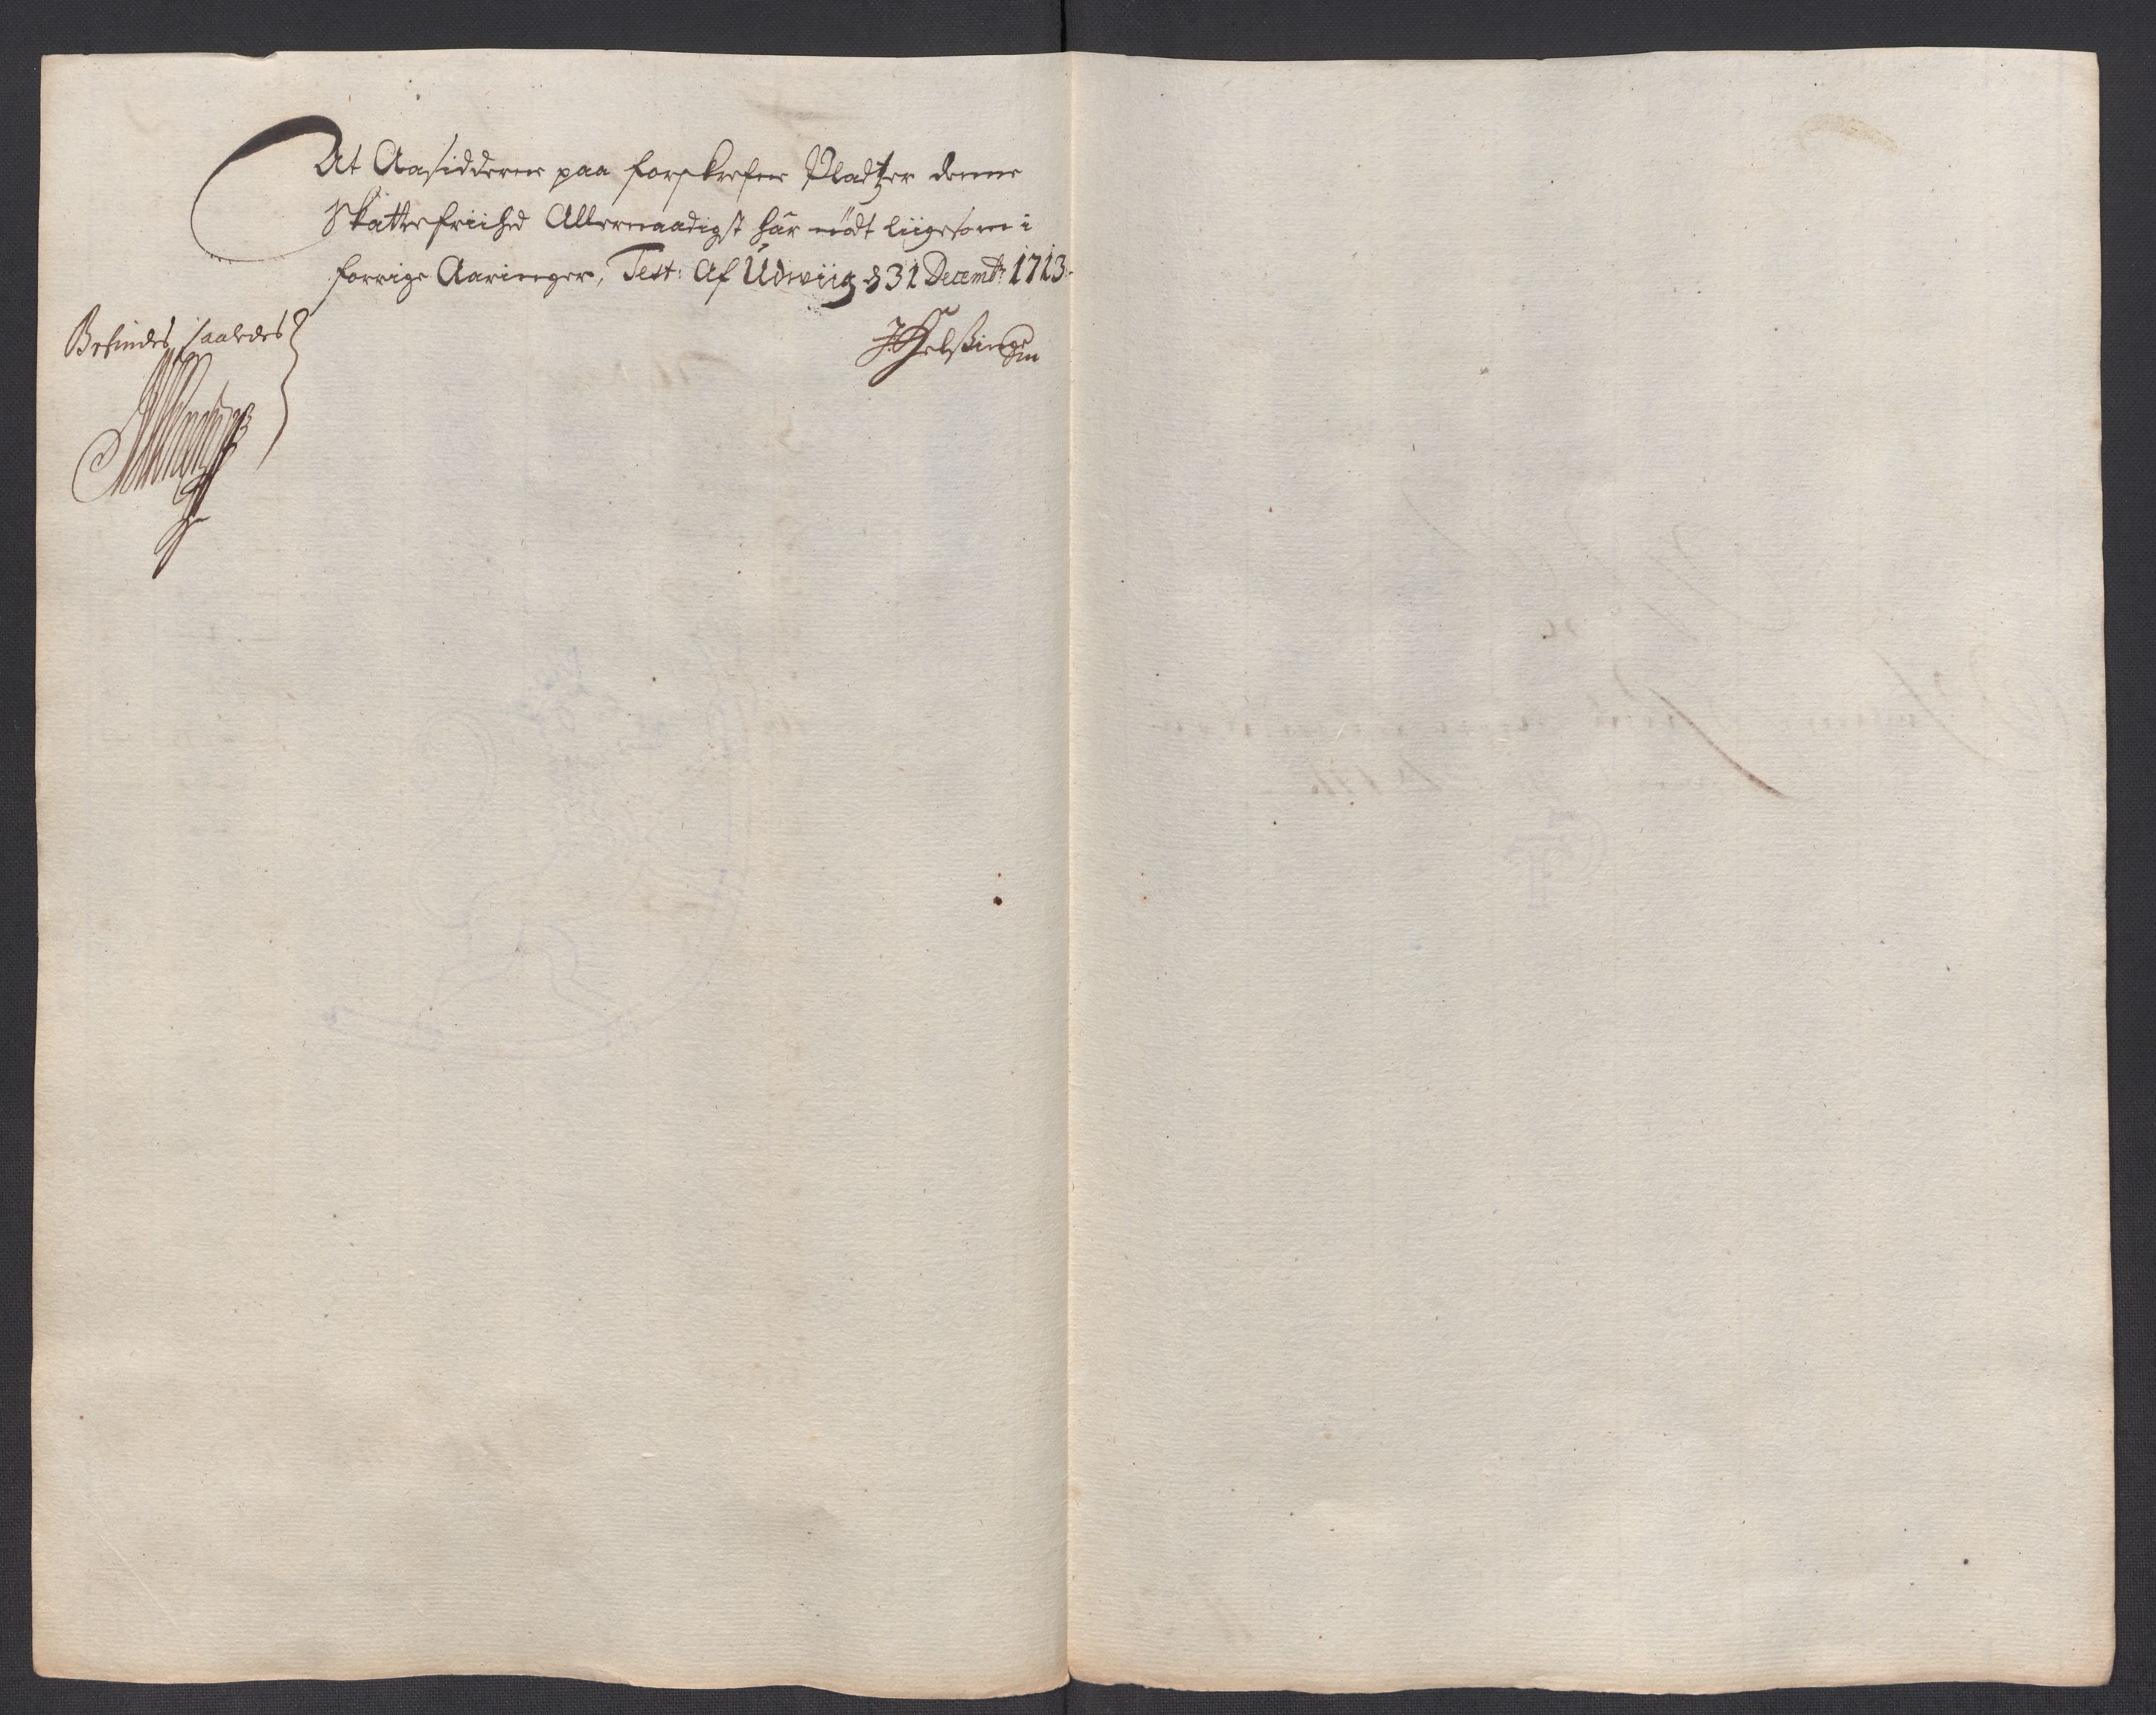 At Aasidderne paa forskrefne Pladtzer denne
Skattefriihed Allernaadigst har nödt liigesom i
forrige Aaringer, Test: Af Udwiig d 31 Decembr 1713
Befindes saaledes